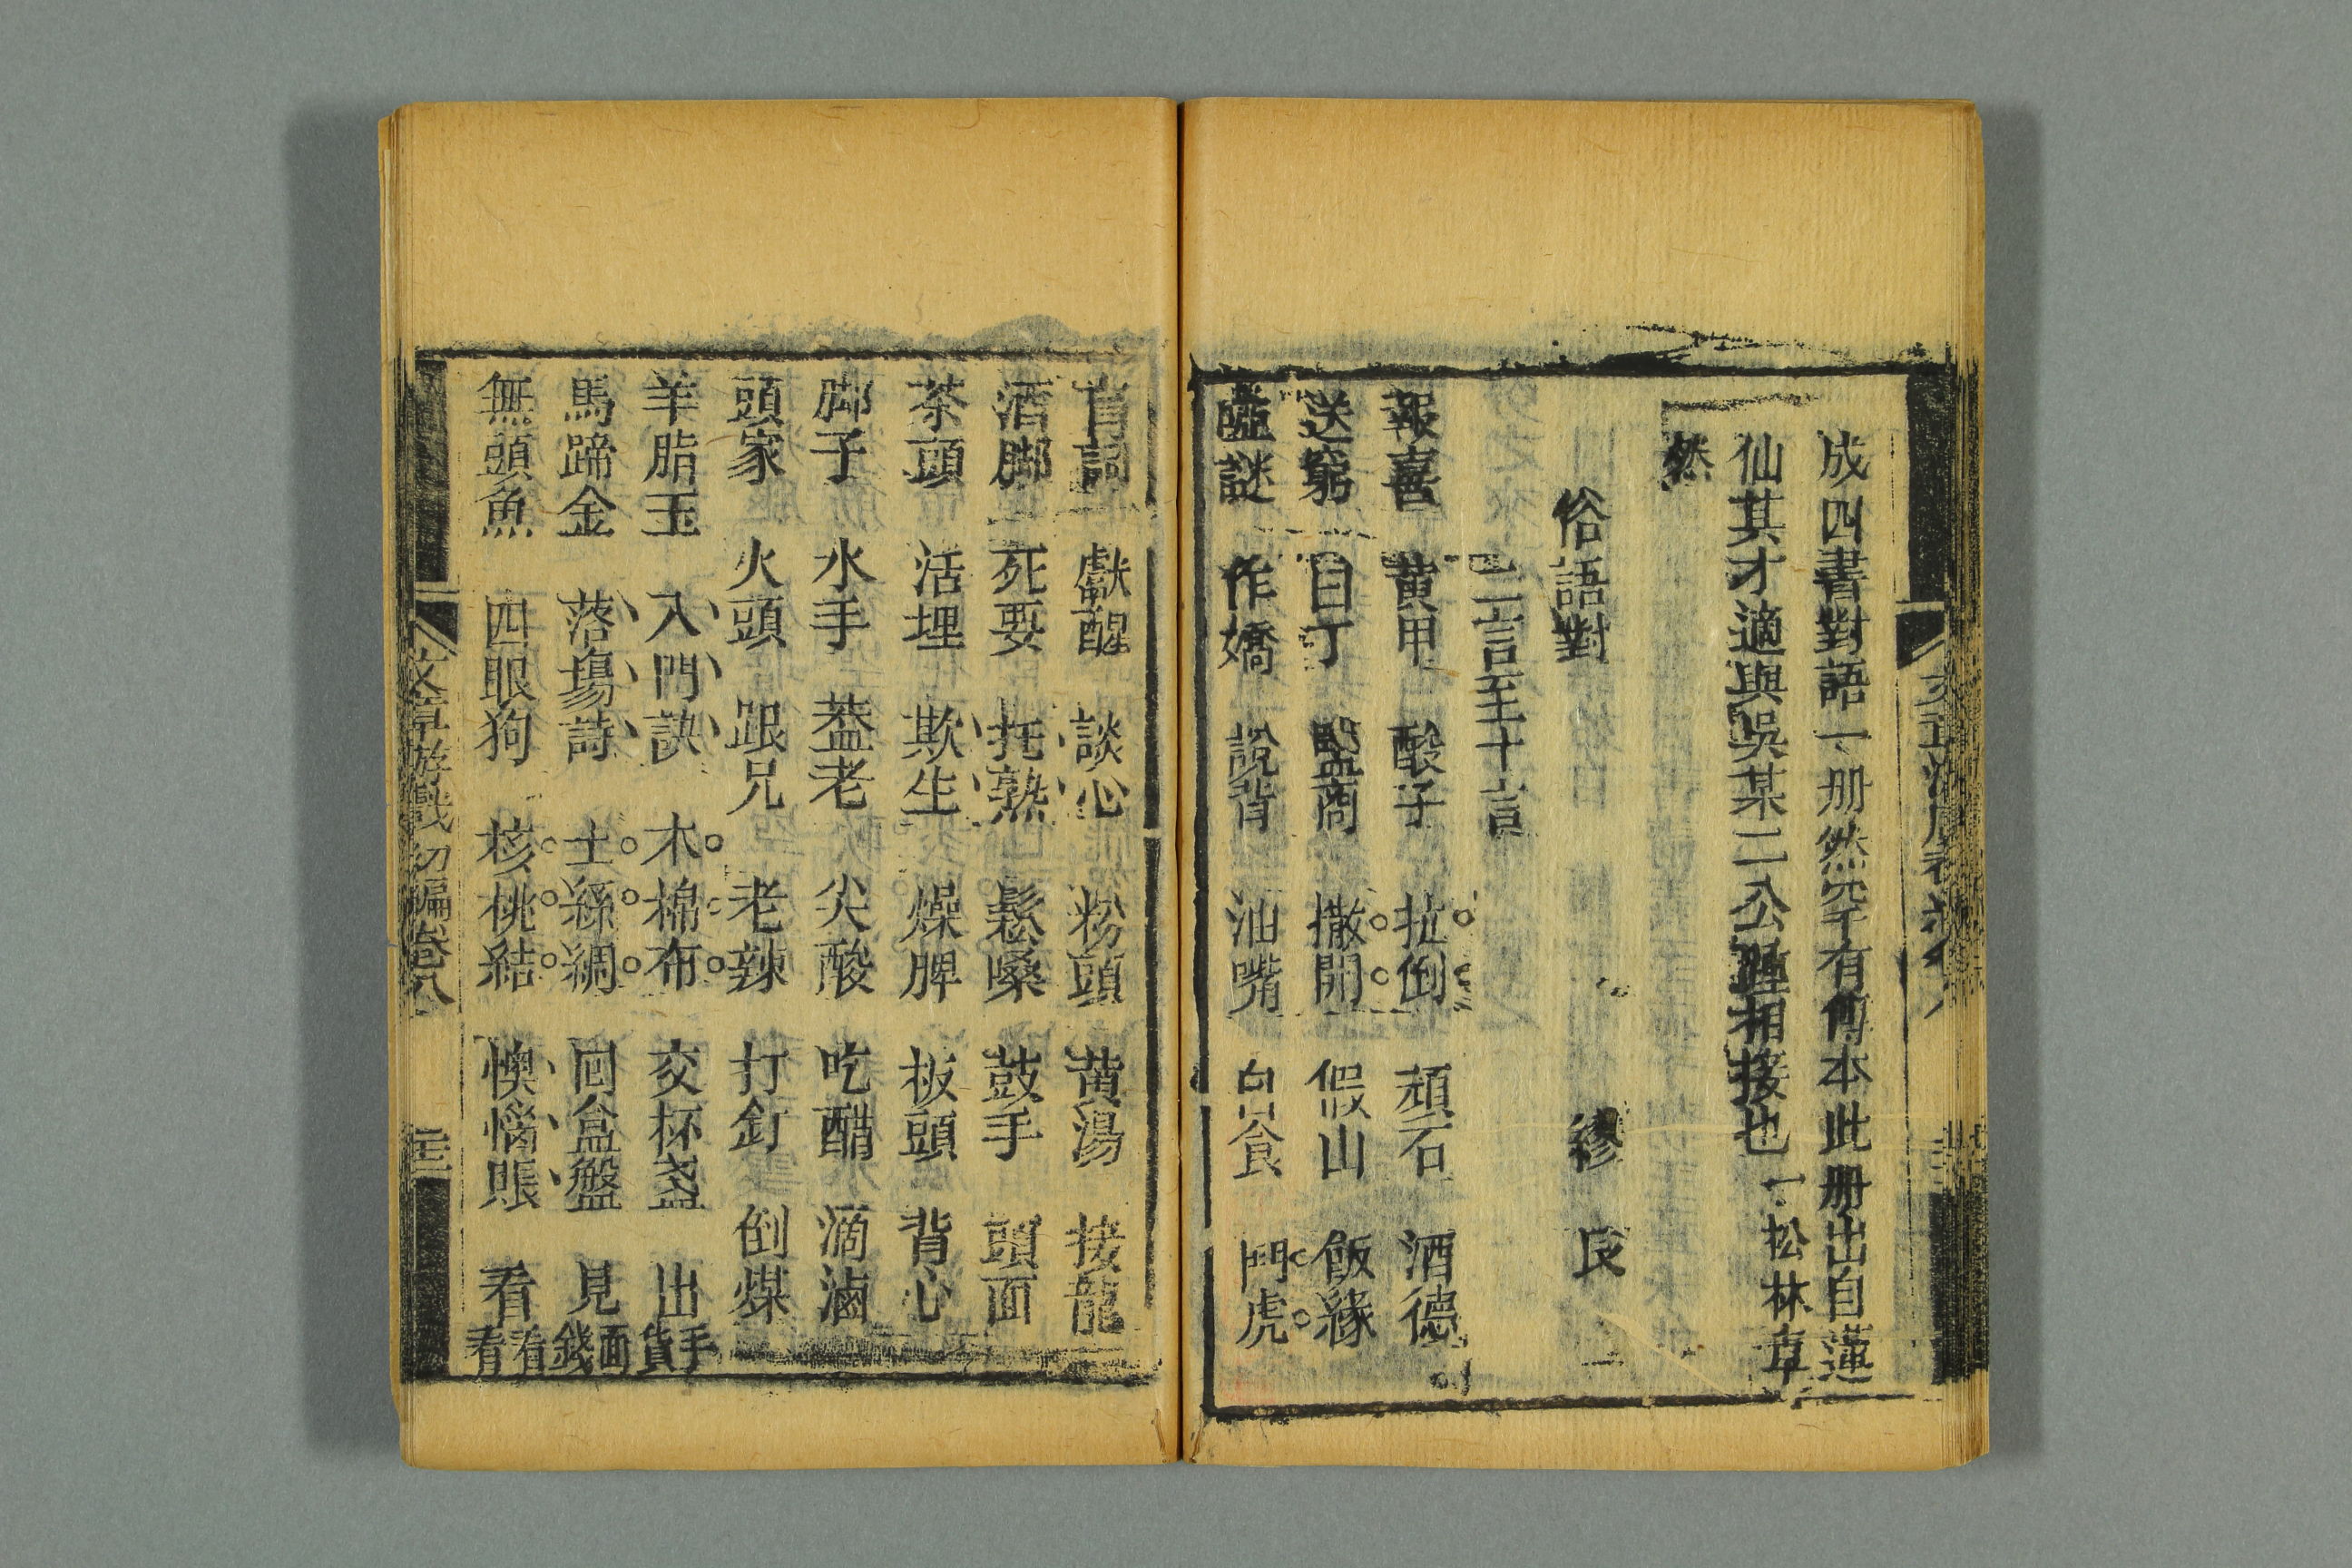 成四書對語一册然罕有傳本此册出自蓮
仙其才適與吳某二公踵相接也 一松林草
然
俗語對 繆艮
二言至十言
報喜 黄甲 酸子 拉倒 頑石 酒德
送窮 白丁 鹽商 撒開 假山 飯緣
啞謎 作嬌 說背 油嘴 白食 鬥虎
盲詞 獻醒 談心 粉頭 黄湯 接龍
酒脚 死要 托熟 鬆嗓 鼓手 頭面
茶頭 活埋 欺生 燥脾 板頭 背心
脚子 水手 葢老 尖酸 吃醋 滴滷
頭家 火頭 跟兄 老辣 打釘 倒煤
羊脂玉 入門訣 木棉布 交杯盞 出手貨
馬蹄金 落塲詩 土絲綢 回盒盤 見面錢
無頭魚 四眼狗 核桃結 懊惱賬 看看看
文章游戲初編卷八